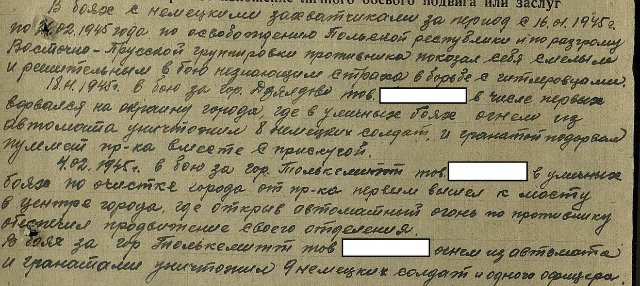 изложение личного боевого подвига или заслуг
В боях с немецкими захватчиками за период с 16.01.1945г.
по 02.1945 года по освобождению Польской республики и по разгрому
Восточно-Прусской группировки противника показал себя смелым
и решительным в бою незнающим страха в борьбе с гитлеровцами.
18.1.1945г. в бою за гор. Дзялдово тов. в числе первых
ворвался на окраину города, где в уличных боях огнем из
автомата уничтожил 8 немецких солдат, и гранатой подорвал
пулемет пр-ка вместе с прислугой.
4.02.1945г. в бою за гор Толькемитт тов в уличных
боях по очистке города от пр-ка первым вышел к мосту
в центре города, где открыв автоматный огонь по противнику
обеспечил продвижение своего отделения.
В боях за гор Толькемитт тов огнем из автомата
и гранатами уничтожил 9 немецких солдат и одного офицера.